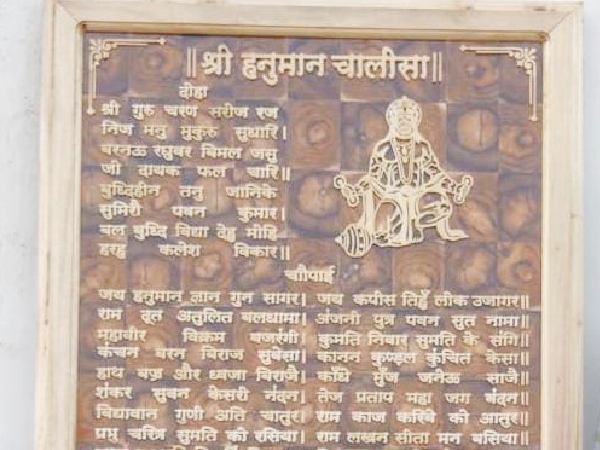 ॥श्री हनुमान चालीसा॥
दोहा
श्री गुरु चरण सरीज रज
निज मनु मुकुरु सुधारि।
बरनऊ रघुबर बिमल जसु
जो दायक फल चारि॥
बुध्दिहीन तनु जानिके
सुमिरौ पवन कुमार।
बल बुध्दि विद्या देहु मोहि
हरहु कलेश विकार॥
चौपाई
जय हनुमान ज्ञान गुन सागर। जय कपीस तिहुँ लोक उजागर॥
राम दूत अतुलित बलधामा। अंजनी पुत्र पवन सुत नामा॥
महाबीर विक्रम बजरंगी। कुमति निवार सुमति के संगि॥
कंचन बरन बिराज सुबेसा। कानन कुण्डल कुंचित केसा॥
हाथ बज्र और ध्वजा बिराजै। काँधे मुँज जनेऊ साजै॥
शंकर सुवन केसरी नंदन। तेज प्रताप महा जग बंदन॥
विद्यावान गुणी अति चातुर। राम काज करिबे को आतुर॥
प्रभु चरित्र सुमति को रसिया। राम लखन सीता मन बसिया॥